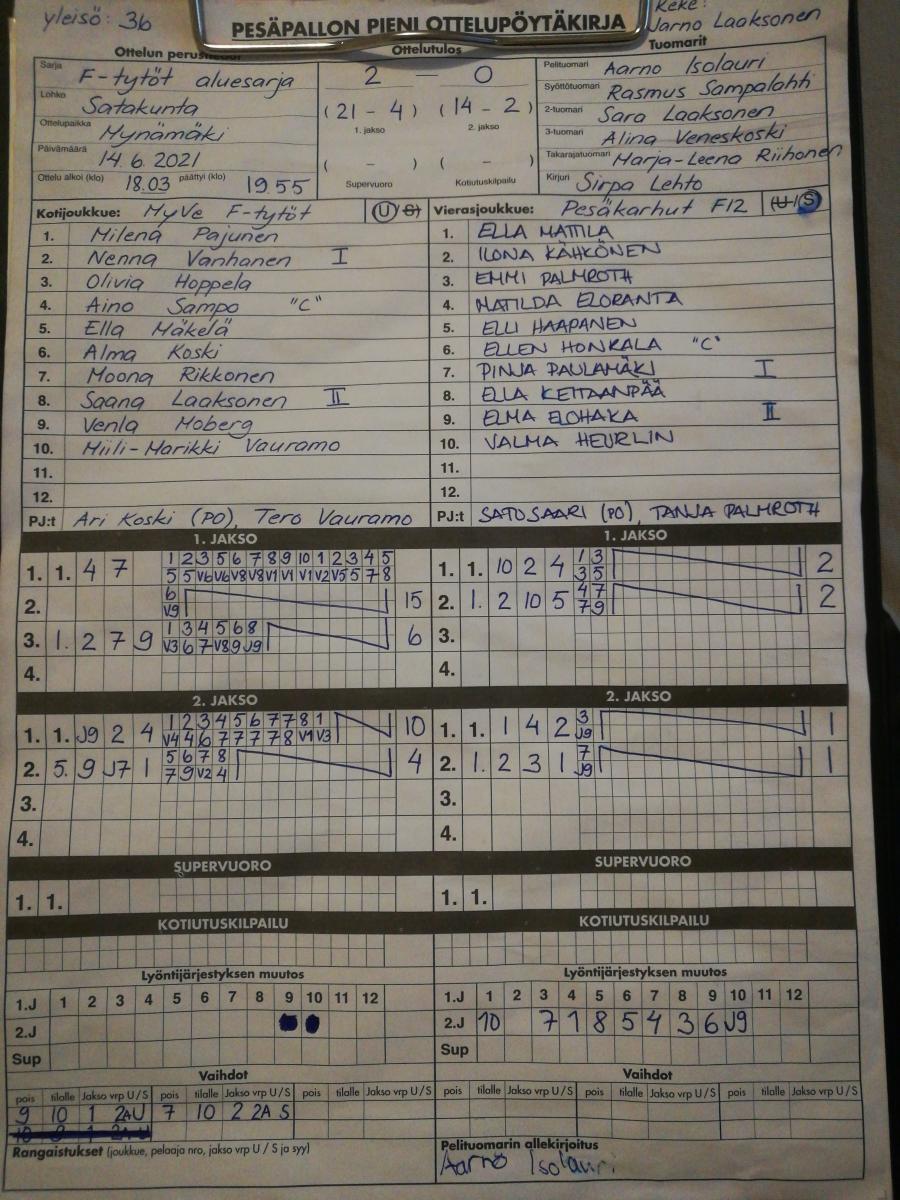 yleisö: 36
PESÄPALLON PIENI OTTELUPÖYTÄKIRJA
Keke:
Jarno Laaksonen
Ottelun perustiedot
Ottelutulos
Tuomarit
Sarja F-tytöt aluesarja
2 — 0
Pelituomari Aarno Isolauri
Lohko Satakunta
(21 - 4) (14 - 2)
Syöttötuomari Rasmus Sampalahti
1. jakso 2. jakso
2-tuomari Sara Laaksonen
Ottelupaikka Mynämäki
3-tuomari Alina Veneskoski
Päivämäärä 14.6.2021
( - ) ( - )
Takarajatuomari Marja-Leena Riihonen
Ottelu alkoi (klo) 18.03 päättyi (klo) 1955
Supervuoro Kotiutuskilpailu
Kirjuri Sirpa Lehto
Kotijoukkue: MyVe F-tytöt U/S
1. Milena Pajunen
2. Nenna Vanhanen I
3. Olivia Hoppela
4. Aino Sampo "C"
5. Ella Mäkelä
6. Alma Koski
7. Moona Rikkonen
8. Saana Laaksonen II
9. Venla Moberg
10. Miili-Marikki Vauramo
11.
12.
PJ:t Ari Koski (PO), Tero Vauramo
Vierasjoukkue: Pesäkarhut F12 U/S
1. ELLA MATTILA
2. ILONA KÄHKÖNEN
3. EMMI PALMROTH
4. MATILDA ELORANTA
5. ELLI HAAPANEN
6. ELLEN HONKALA "C"
7. PINJA PAULAMÄKI I
8. ELLA KEITAANPÄÄ
9. ELMA ELOHAKA II
10. VALMA HEURLIN
11.
12.
PJ:t SATU SAARI (PO), TANJA PALMROTH
1. JAKSO
1 2 3 5 6 7 8 9 10 1 2 3 4 5
1. 1. 4 7
5 5 V6 V6 V8 V8 V1 V1 V1 V2 V5 5 7 8
6
2. 15
V9
1 3 4 5 6 8
3. 1. 2 7 9 6
V3 6 7 V8 9 J9
4.
1. JAKSO
1 3
1. 1. 10 2 4 2
3 5
4 7
2. 1. 2 10 5 2
7 9
3.
4.
2. JAKSO
1 2 3 4 5 6 7 7 8 1
1. 1. J9 2 4 10
V4 4 6 7 7 7 7 8 V1 V3
5 6 7 8
2. 5. 9 J7 1 4
7 9 V2 4
3.
4.
2. JAKSO
3
1. 1. 1 4 2 1
J9
7
2. 1. 2 3 1 1
J9
3.
4.
SUPERVUORO
1. 1.
SUPERVUORO
1. 1.
KOTIUTUSKILPAILU
KOTIUTUSKILPAILU
Lyöntijärjestyksen muutos
1.J 1 2 3 4 5 6 7 8 9 10 11 12
2.J
Sup
Lyöntijärjestyksen muutos
1.J 1 2 3 4 5 6 7 8 9 10 11 12
2.J 10 7 1 8 5 4 3 6 J9
Sup
Vaihdot
pois tilalle Jakso vrp U/S pois tilalle Jakso vrp U/S pois tilalle Jakso vrp U/S
9 10 1 2A U 7 10 2 2A S
Vaihdot
pois tilalle Jakso vrp U/S pois tilalle Jakso vrp U/S pois tilalle Jakso vrp U/S
Rangaistukset (joukkue, pelaaja nro, jakso vrp U / S ja syy)
Pelituomarin allekirjoitus
Aarno Isolauri